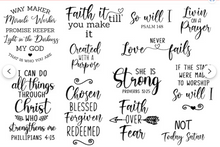 WAY MAKER
Miracle Worker
PROMISE KEEPER
Light in the Darkness
MY GOD
THAT IS WHO YOU ARE
I CAN DO
all things
THROUGH
Christ
WHO
strengthens
me
PHILLIPIANS 4:13
Faith it
till
you make
it
Created
WITH A
Purpose
Chosen
BLESSED
Forgiven
REDEEMED
So will I
PSALM 149
NEVER
Love
fails
SHE IS
Strong
PROVERBS 31:25
FAITH
OVER
Fear
Livin'
ON A
Prayer
IF THE STARS
WERE MADE
TO WORSHIP
So will I
NOT
Today Satan